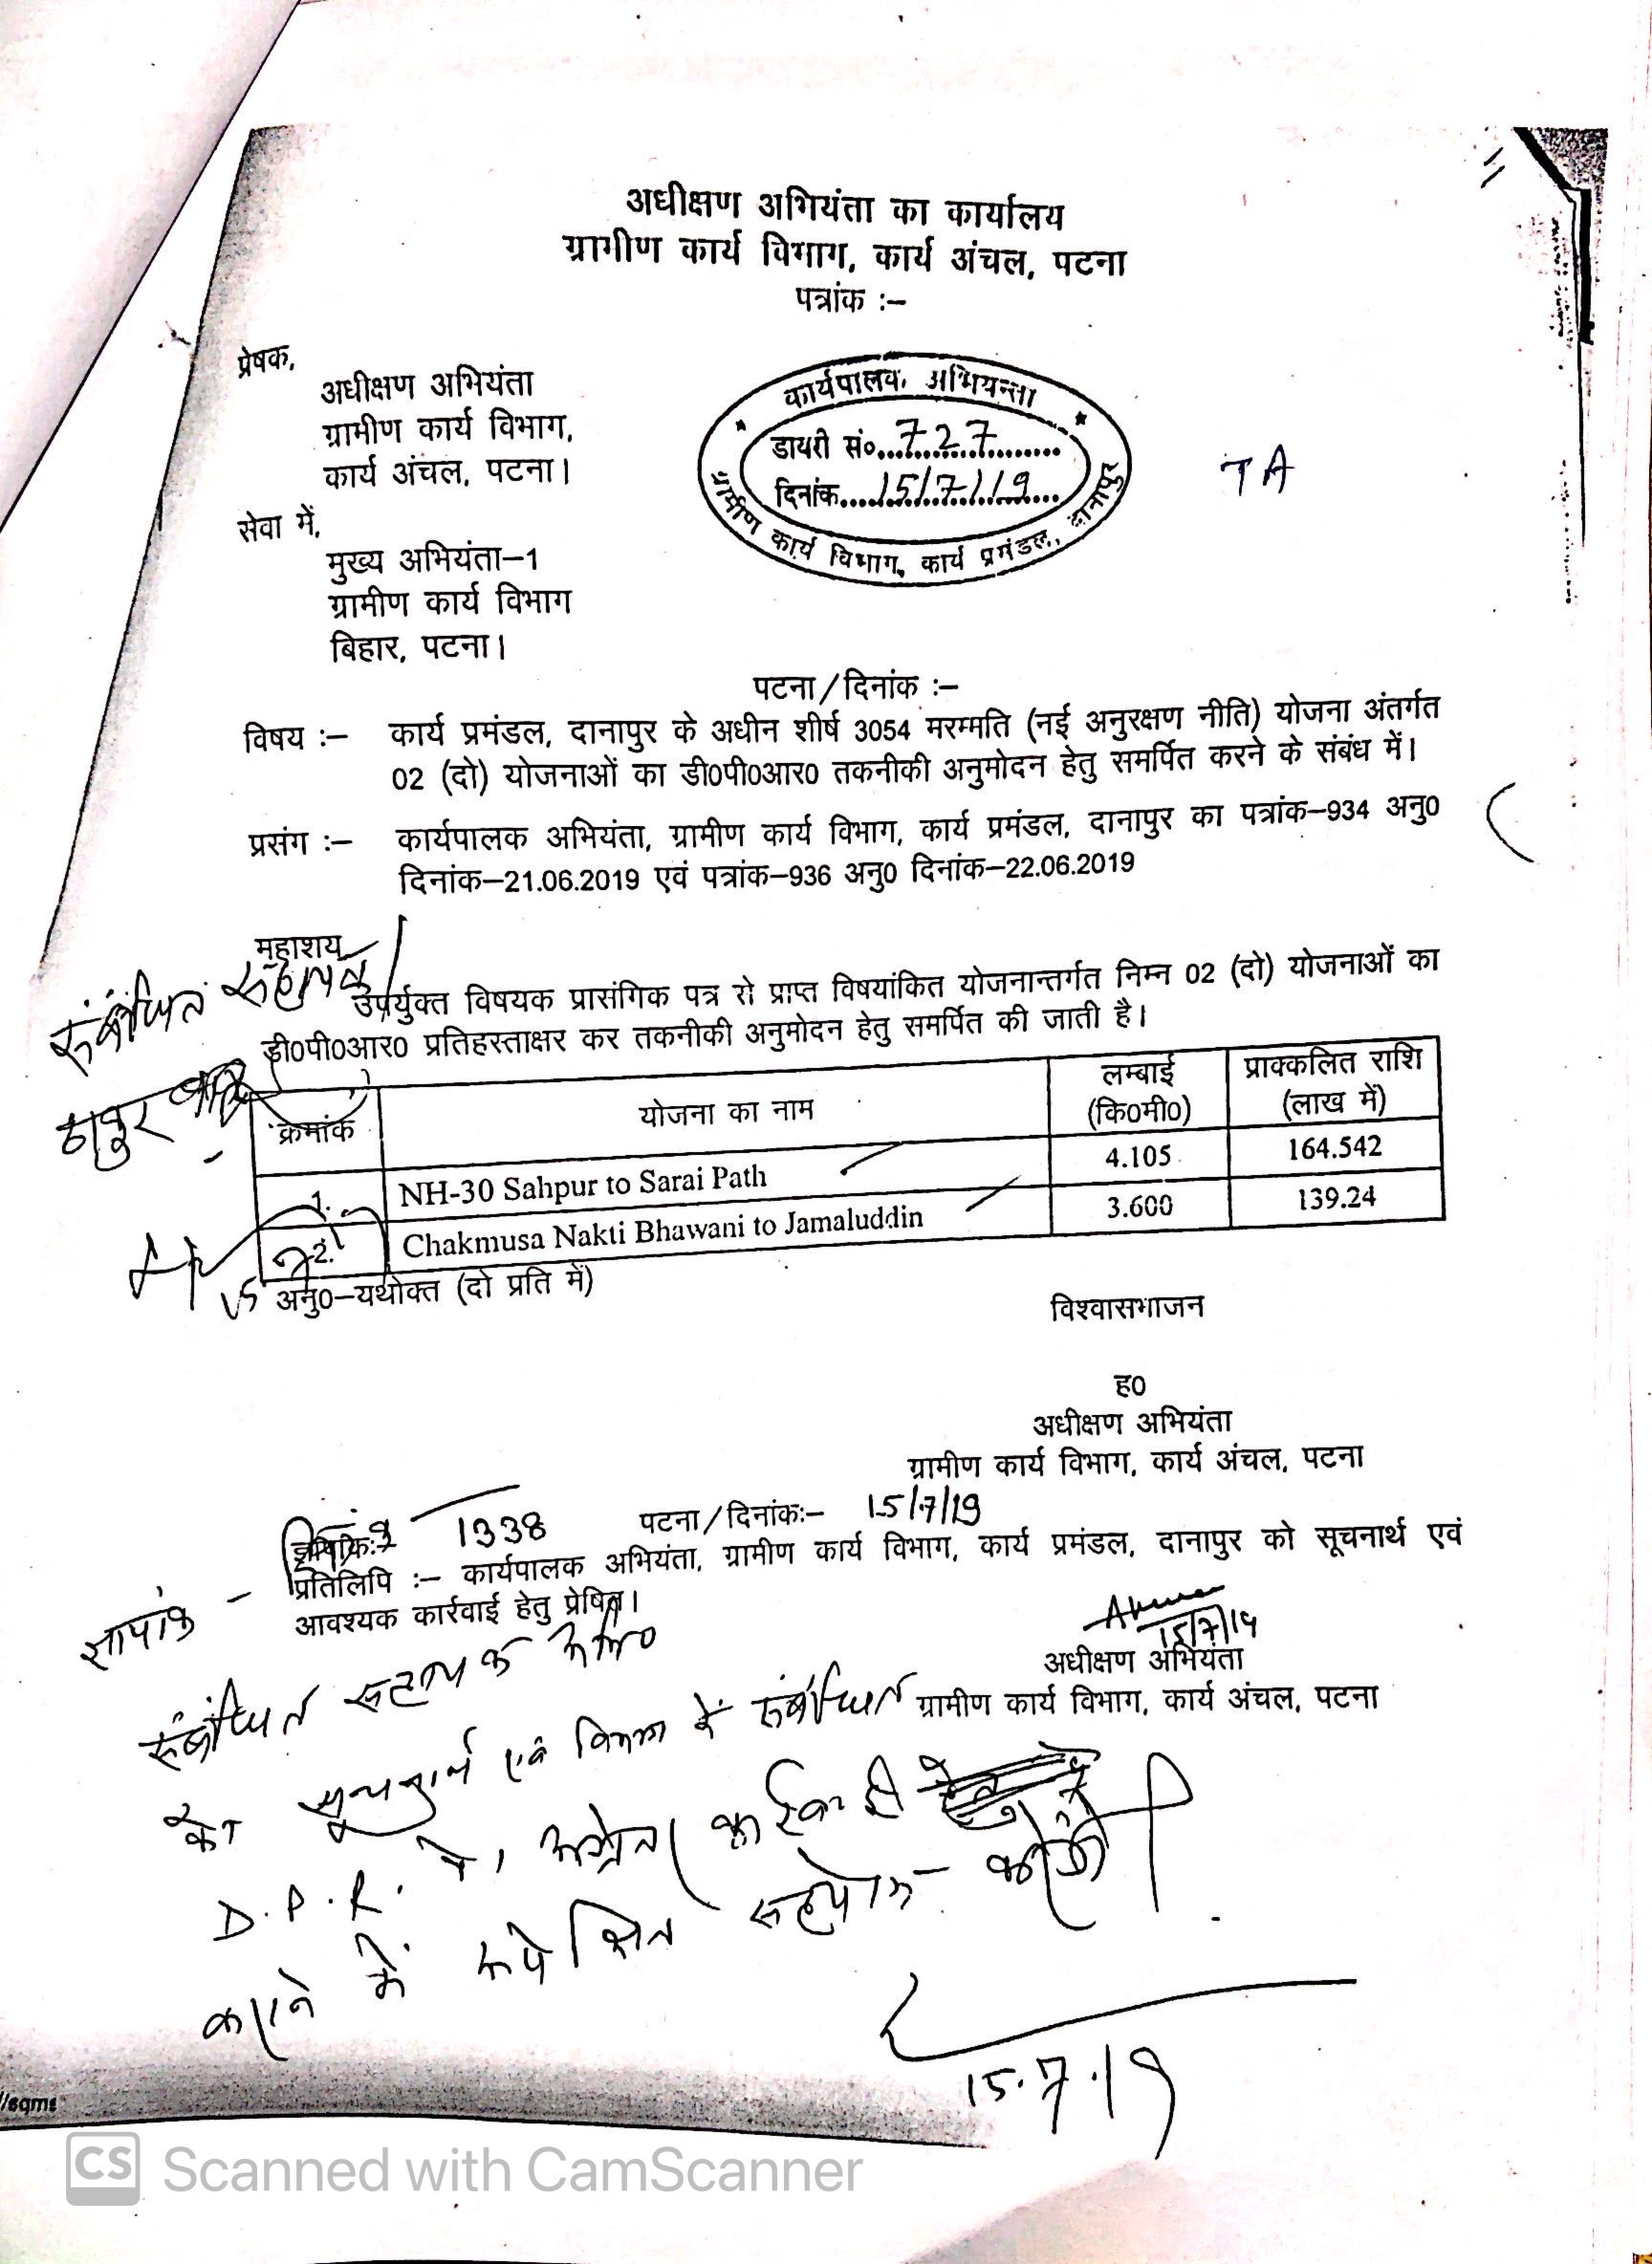 अधीक्षण अभियंता का कार्यालय
ग्रामीण कार्य विभाग, कार्य अंचल, पटना
पत्रांक :–
प्रेषक,
अधीक्षण अभियंता
ग्रामीण कार्य विभाग,
कार्य अंचल, पटना।
कार्यपालक अभियन्ता
डायरी सं०...727.........
दिनांक....15/7/19...
ग्रामीण कार्य विभाग, कार्य प्रमंडल, दानापुर
TA
सेवा में,
मुख्य अभियंता–1
ग्रामीण कार्य विभाग
बिहार, पटना।
पटना/दिनांक :–
विषय :– कार्य प्रमंडल, दानापुर के अधीन शीर्ष 3054 मरम्मति (नई अनुरक्षण नीति) योजना अंतर्गत
02 (दो) योजनाओं का डी0पी0आर0 तकनीकी अनुमोदन हेतु समर्पित करने के संबंध में।
प्रसंग :– कार्यपालक अभियंता, ग्रामीण कार्य विभाग, कार्य प्रमंडल, दानापुर का पत्रांक–934 अनु0
दिनांक–21.06.2019 एवं पत्रांक–936 अनु0 दिनांक–22.06.2019
महाशय
संबंधित सहायक
उपर्युक्त विषयक प्रासंगिक पत्र से प्राप्त विषयांकित योजनान्तर्गत निम्न 02 (दो) योजनाओं का
डी0पी0आर0 प्रतिहस्ताक्षर कर तकनीकी अनुमोदन हेतु समर्पित की जाती है।
क्रमांक योजना का नाम लम्बाई (कि0मी0) प्राक्कलित राशि (लाख में)
1. NH-30 Sahpur to Sarai Path 4.105 164.542
2. Chakmusa Nakti Bhawani to Jamaluddin 3.600 139.24
अनु0–यथोक्त (दो प्रति में)
विश्वासभाजन
ह0
अधीक्षण अभियंता
ग्रामीण कार्य विभाग, कार्य अंचल, पटना
ज्ञापांक – 1338 पटना/दिनांक:– 15/7/19
प्रतिलिपि :– कार्यपालक अभियंता, ग्रामीण कार्य विभाग, कार्य प्रमंडल, दानापुर को सूचनार्थ एवं
आवश्यक कार्रवाई हेतु प्रेषित।
15/7/19
अधीक्षण अभियंता
ग्रामीण कार्य विभाग, कार्य अंचल, पटना
संबंधित सहायक
को सूचनार्थ एवं विभाग में संबंधित
D.P.R.
कराने में अपेक्षित सहयोग करेंगे
15.7.19
//sqms
CS Scanned with CamScanner